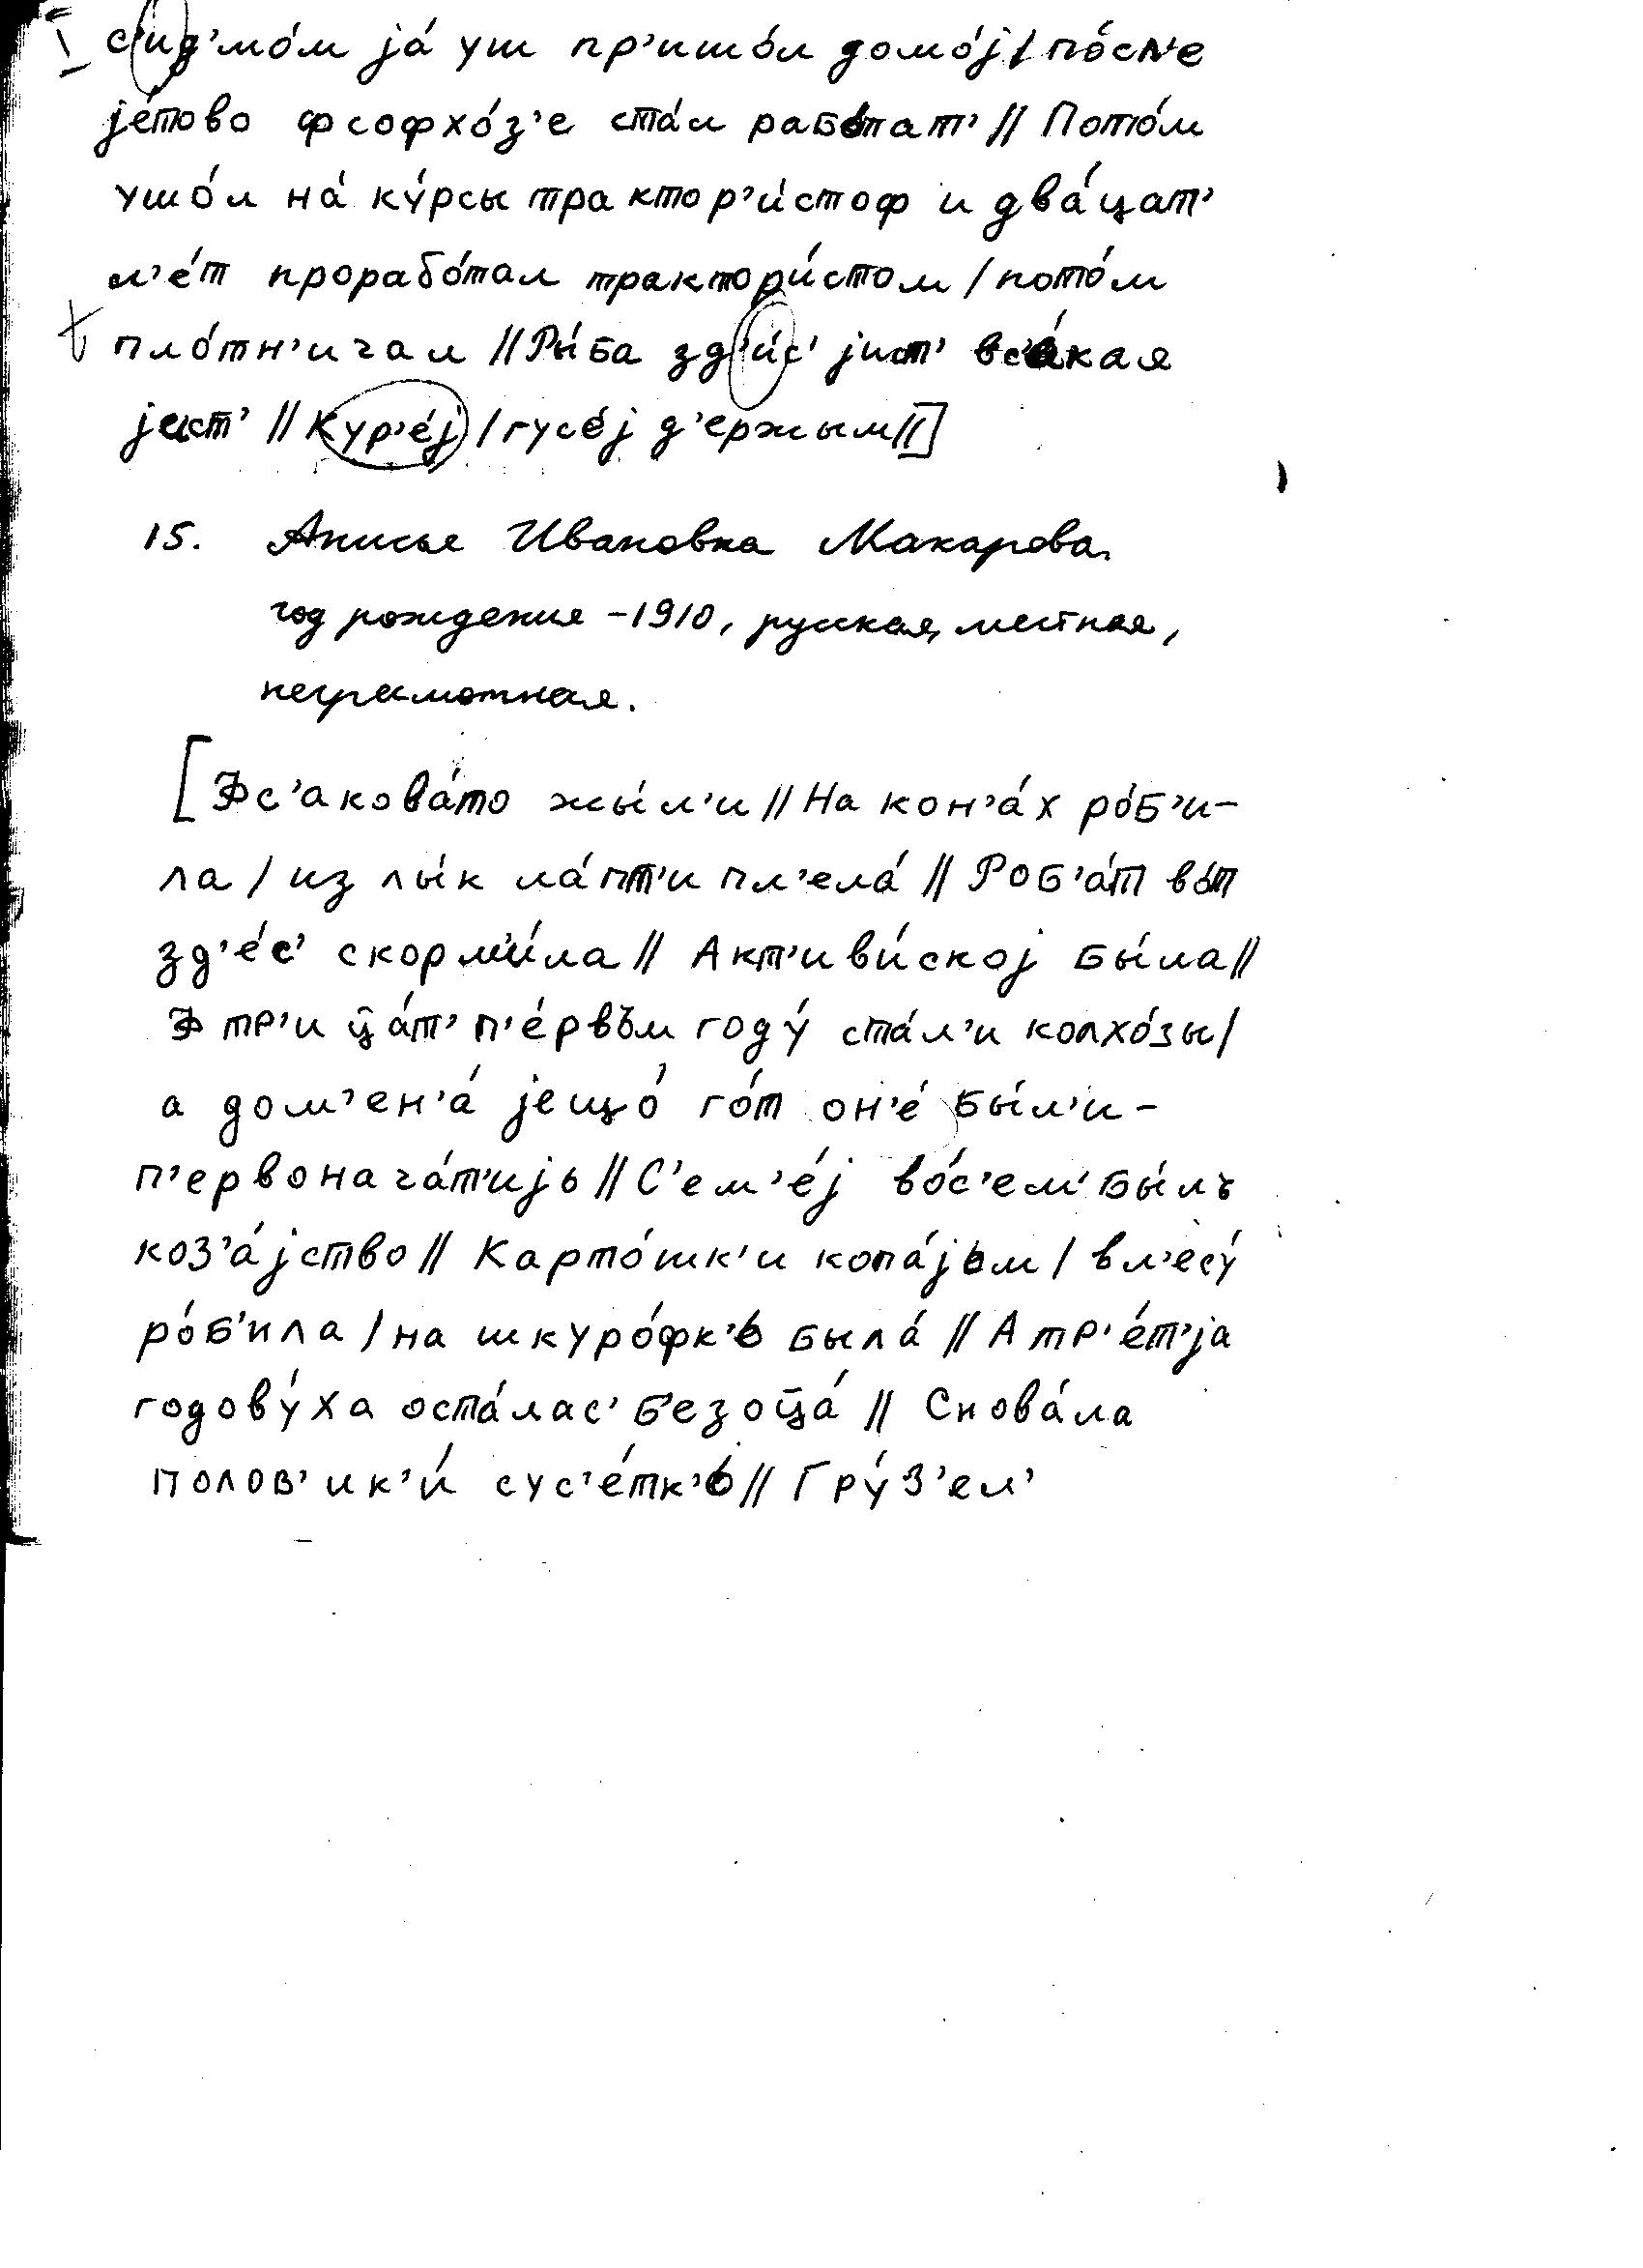 с'ид'мо́м jа́ уш пр'ишо́л домо́j / по́сл'е
jе́тово фсофхо́з'е ста́л рабо́тат' // Пото́м
ушо́л на́ ку́рсы трактор'и́стоф и два́цат'
л'е́т прорабо́тал трактори́стом / пото́м
пло́тн'ичал // Ры́ба зд'и́с' jист' вс'а́кая
jест' // Кур'е́j / гусе́j д'ержым //]
15. Анисья Ивановна Макарова.
год рождения - 1910, русская, местная,
неграмотная.
[Фс'акова́то жы́л'и // На кон'а́х ро́б'и-
ла / из лы́к ла́пт'и пл'ела́ // Роб'а́т во́т
зд'е́с' скорм'и́ла // Акт'иви́скоj бы́ла //
Ф тр'иц̄а́т' п'е́рвъм году́ ста́л'и колхо́зы /
а дом'ен'а́ jещо́ го́т он'е́ бы́л'и -
п'ервонача́т'иjь // С'ем'е́j во́с'ем' бы́лъ
коз'а́jство // Карто́шк'и копа́jьм / вл'есу́
ро́б'ила / на шкуро́фк'ь была́ // А тр'е́т'jа
годову́ха оста́лас' б'езоц̄а́ // Снова́ла
полов'ик'и́ сус'е́тк'ь // Гру́з'ел'